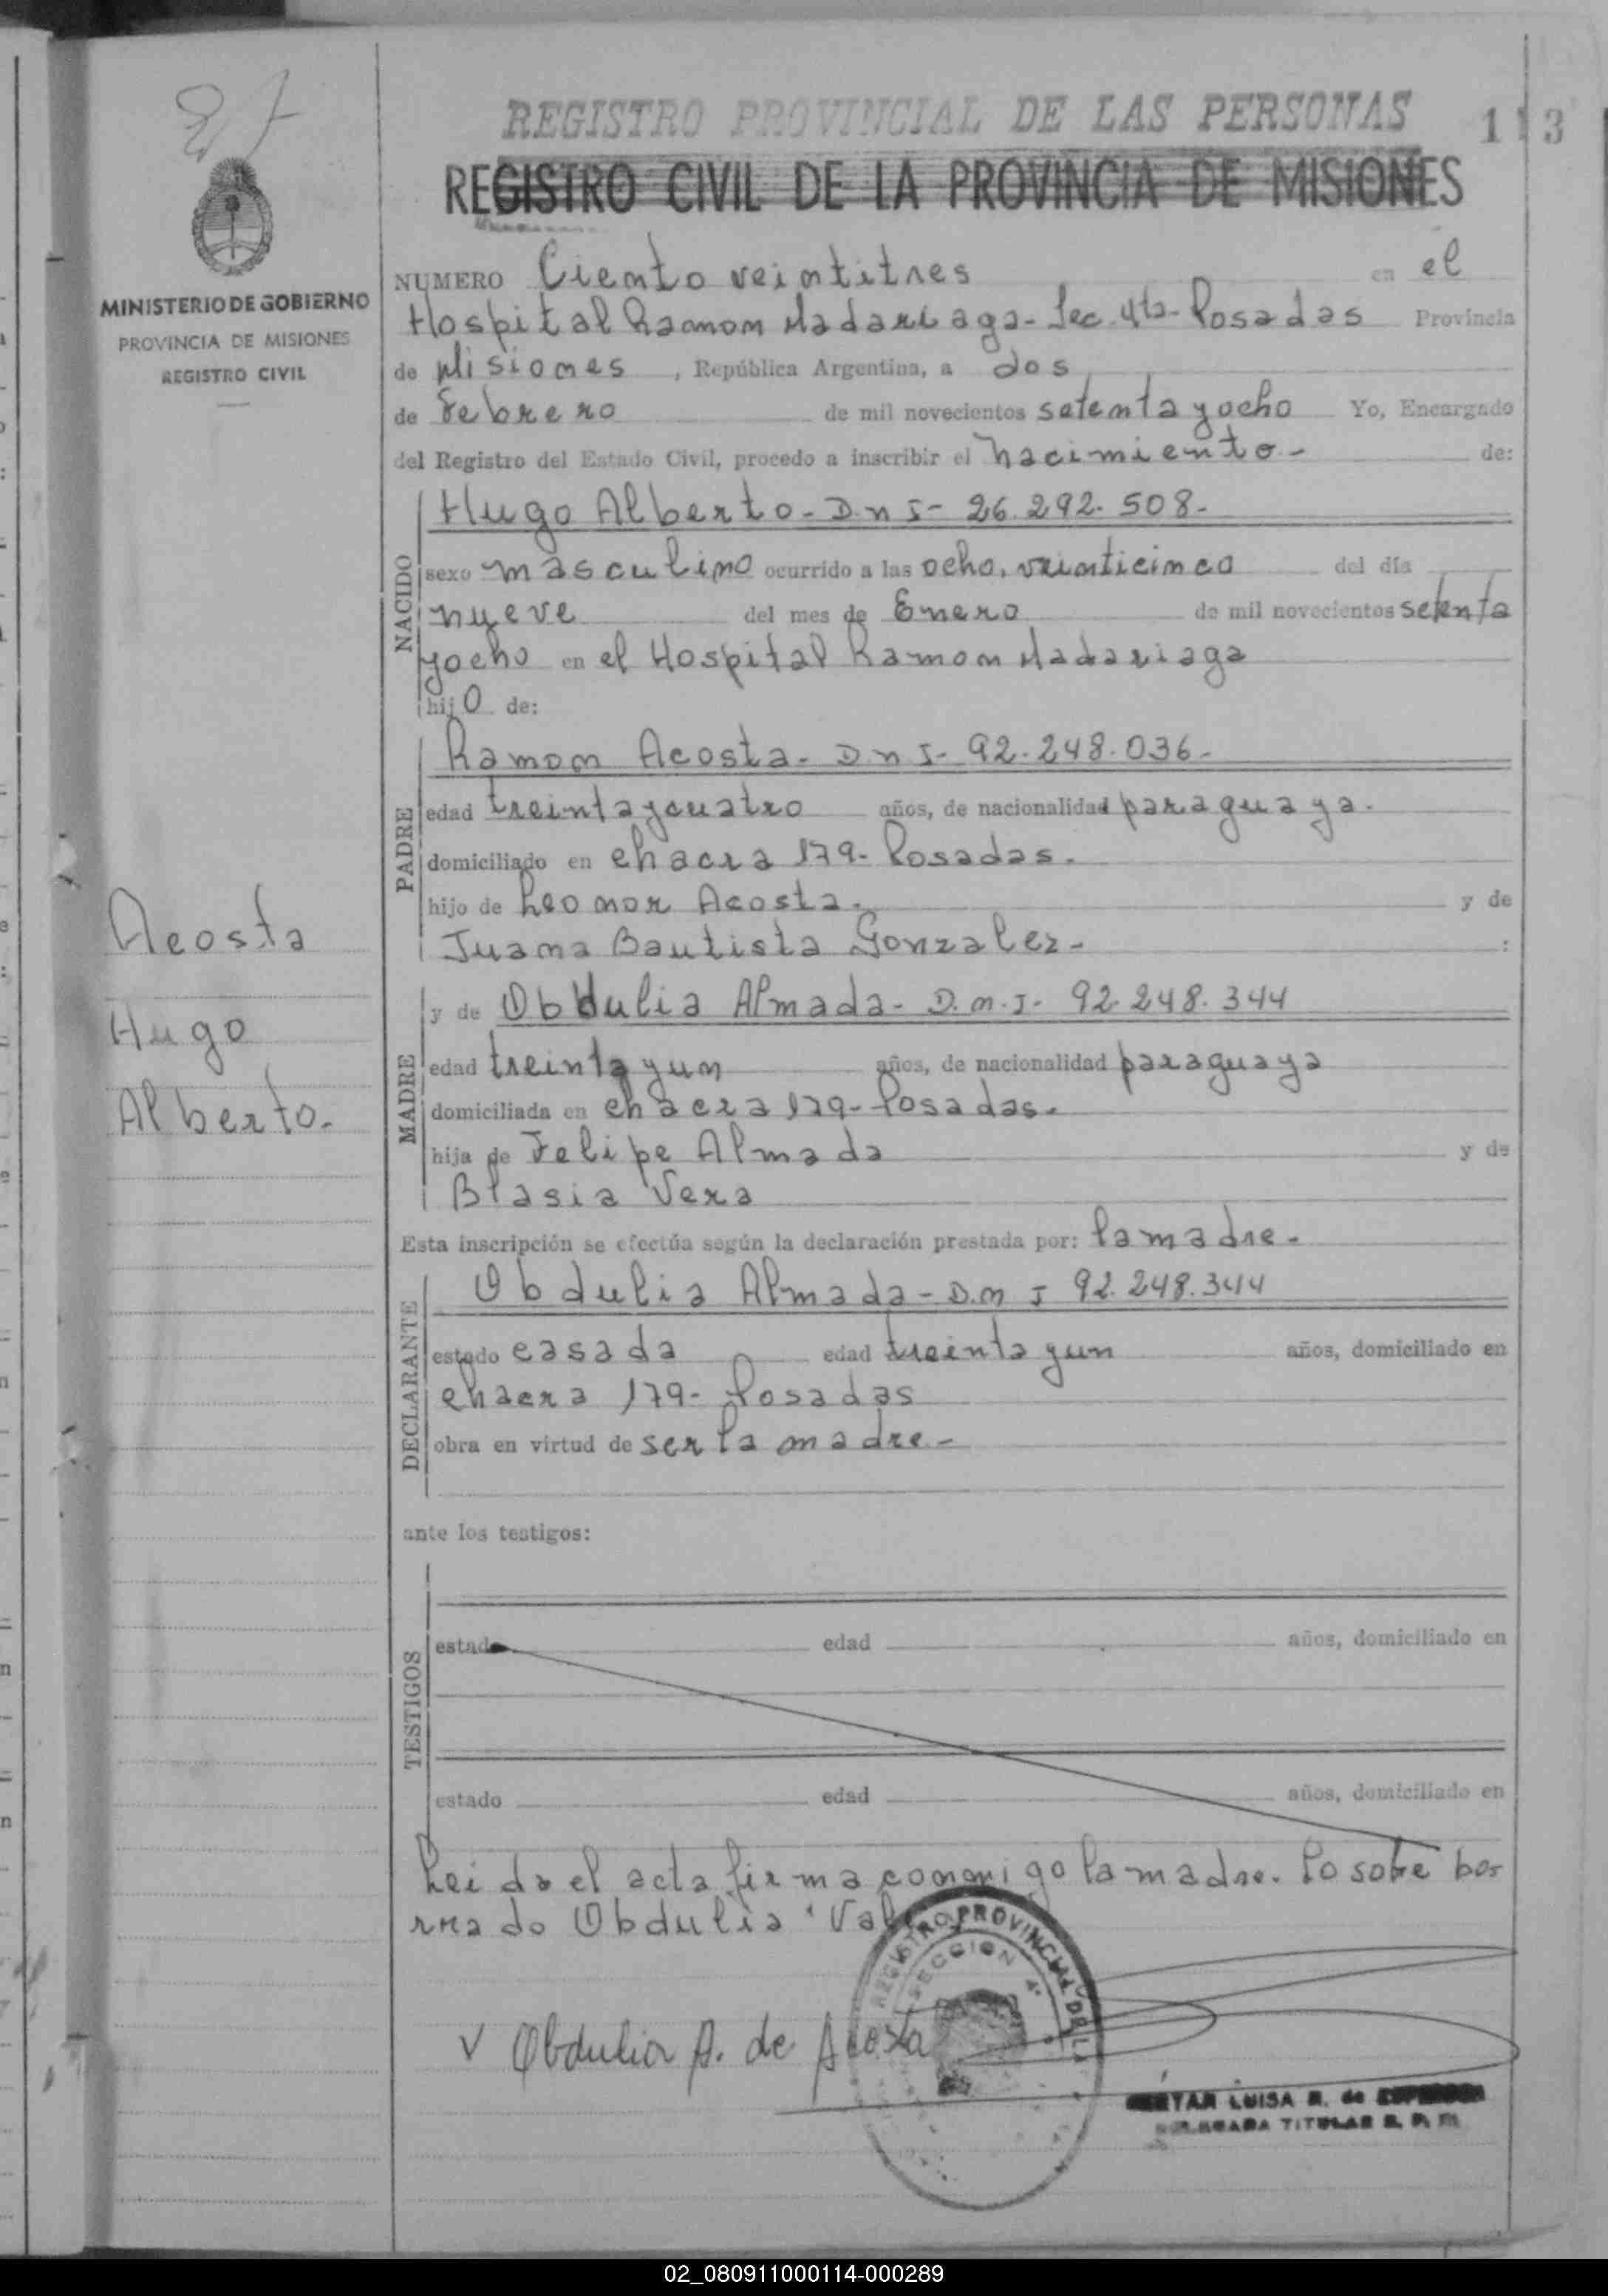 REGISTRO PROVINCIAL DE LAS PERSONAS
113
REGISTRO CIVIL DE LA PROVINCIA DE MISIONES
MINISTERIO DE GOBIERNO
PROVINCIA DE MISIONES
REGISTRO CIVIL
NUMERO Ciento veintitres en el
Hospital Ramon Madariaga - Sec. 4ta - Posadas Provincia
de Misiones, República Argentina, a dos
de Febrero de mil novecientos setenta y ocho Yo, Encargado
del Registro del Estado Civil, procedo a inscribir el nacimiento - de:
NACIDO
Hugo Alberto - DnI - 26.292.508 -
sexo masculino ocurrido a las ocho, veinticinco del día
nueve del mes de Enero de mil novecientos setenta
y ocho en el Hospital Ramon Madariaga
hijo de:
PADRE
Ramon Acosta - DnI - 92.248.036 -
edad treinta y cuatro años, de nacionalidad paraguaya.
domiciliado en chacra 179 - Posadas.
hijo de Leonor Acosta. y de
Juana Bautista Gonzalez - :
Acosta
Hugo
Alberto.
MADRE
y de Obdulia Almada - D.n.I - 92.248.344
edad treinta y un años, de nacionalidad paraguaya
domiciliada en chacra 179 - Posadas.
hija de Felipe Almada y de
Blasia Vera
Esta inscripción se efectúa según la declaración prestada por: la madre.
DECLARANTE
Obdulia Almada - D.n I 92.248.344
estado casada edad treinta y un años, domiciliado en
chacra 179 - Posadas
obra en virtud de ser la madre -
ante los testigos:
TESTIGOS
estado edad años, domiciliado en
estado edad años, domiciliado en
Leida el acta firma conmigo la madre. Lo sobre bo-
rrado Obdulia
REGISTRO PROVINCIAL DE LA
SECCION 4ª
v Obdulia A. de Acosta
LUISA R. de
TITULAR R. P. P.
02_080911000114-000289